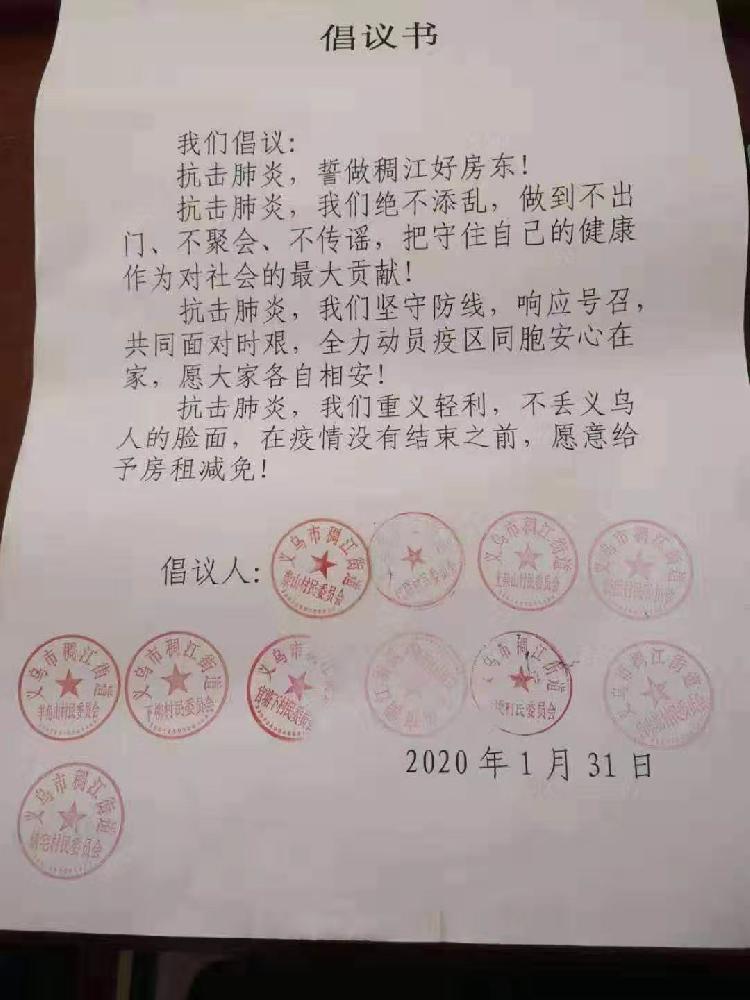 倡议书
我们倡议：
抗击肺炎，誓做稠江好房东！
抗击肺炎，我们绝不添乱，做到不出
门、不聚会、不传谣，把守住自己的健康
作为对社会的最大贡献！
抗击肺炎，我们坚守防线，响应号召，
共同面对时艰，全力动员疫区同胞安心在
家，愿大家各自相安！
抗击肺炎，我们重义轻利，不丢义乌
人的脸面，在疫情没有结束之前，愿意给
予房租减免！
倡议人：
义乌市稠江街道
山村民委员会
义乌市稠江街道
山村民委员会
义乌市稠江街道
义乌市稠江街道
山村民委员会
义乌市稠江街道
下柳村民委员会
义乌市
稠江街道
村民委员会
义乌市稠江街道
2020年1月31日
义乌市稠江街道
村民委员会